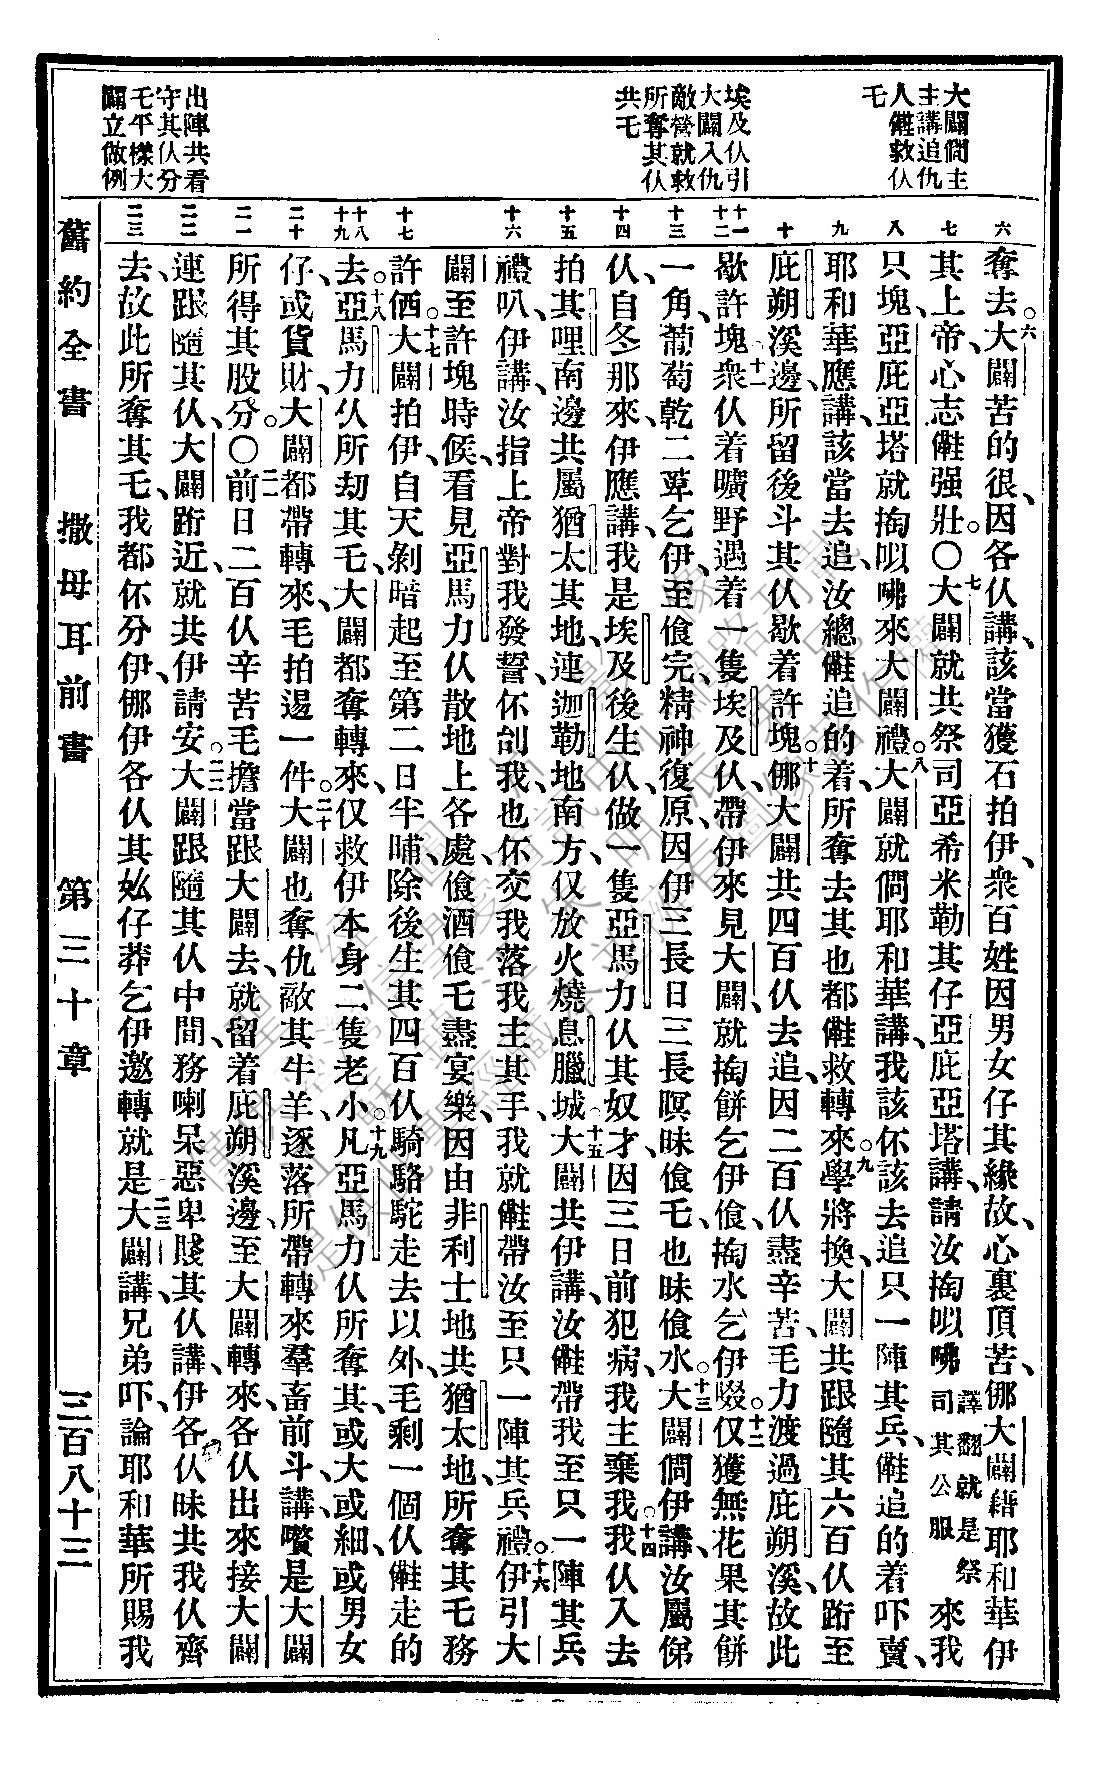 大闢問主
主講追仇
人𠍇救仈
乇
埃及仈引
大闢入仇
敵營就救
所奪其仈
共乇
出陣共看
守其仈分
乇平樣大
闢立做例
六
七
八
九
十
十一
十二
十三
十四
十五
十六
十七
十八
十九
二十
二一
二二
二三
奪去。六大闢苦的很、因各仈講、該當獲石拍伊、衆百姓因男女仔其緣故、心裏頂苦、㑚大闢藉耶和華伊
其上帝、心志𠍇强壯。〇七大闢就共祭司亞希米勒其仔亞庇亞塔講、請汝掏㕥咈譯翻就是祭司其公服來我
只塊、亞庇亞塔就掏㕥咈來大闢禮。八大闢就問耶和華講、我該伓該去追只一陣其兵、𠍇追的着吓賣、
耶和華應講、該當去追、汝總𠍇追的着、所奪去其也都𠍇救轉來。九學將換、大闢共跟隨其六百仈跨至
庇朔溪邊、所留後斗其仈歇着許塊。十㑚大闢共四百仈去追、因二百仈盡辛苦、毛力渡過庇朔溪、故此
歇許塊。十一衆仈着曠野遇着一隻埃及仈、帶伊來見大闢、就掏餅乞伊飡、掏水乞伊啜。十二仅獲無花果其餅
一角、葡萄乾二萆乞伊、至飡完、精神復原、因伊三長日三長暝昧飡乇、也昧飡水。十三大闢問伊講、汝屬俤
仈、自冬那來、伊應講、我是埃及後生仈、做一隻亞馬力仈其奴才、因三日前犯病、我主棄我。十四我仈入去
拍其哩南邊共屬猶太其地、連迦勒地南方、仅放火燒息臘城。十五大闢共伊講、汝𠍇帶我至只一陣其兵
禮叭、伊講、汝指上帝對我發誓、伓刣我、也伓交我落我主其手、我就𠍇帶汝至只一陣其兵禮。十六伊引大
闢至許塊時候、看見亞馬力仈散地上各處、飡酒飡乇、盡宴樂、因由非利士地共猶太地、所奪其乇務
許価。十七大闢拍伊、自天剝暗起至第二日半晡、除後生其四百仈騎駱駝走去以外、毛剩一個仈𠍇走的
去。十八亞馬力仈所刧其乇、大闢都奪轉來、仅救伊本身二隻老小。十九凡亞馬力仈所奪其、或大或細、或男女
仔、或貨財、大闢都帶轉來、毛拍逿一件。二十大闢也奪仇敵其牛羊、逐落所帶轉來羣畜前斗、講、嚽是大闢
所得其股分。〇二一前日二百仈辛苦毛擔當跟大闢去、就留着庇朔溪邊、至大闢轉來、各仈出來接大闢
連跟隨其仈、大闢跨近、就共伊請安。二二大闢跟隨其仈中間、務喇呆惡卑賤其仈講、伊各仈昧共我仈齊
去、故此所奪其乇、我都伓分伊、㑚伊各仈其妝仔莽乞伊邀轉就是。二三大闢講、兄弟吓、論耶和華所賜我
舊約全書　撒母耳前書　第三十章　三百八十三